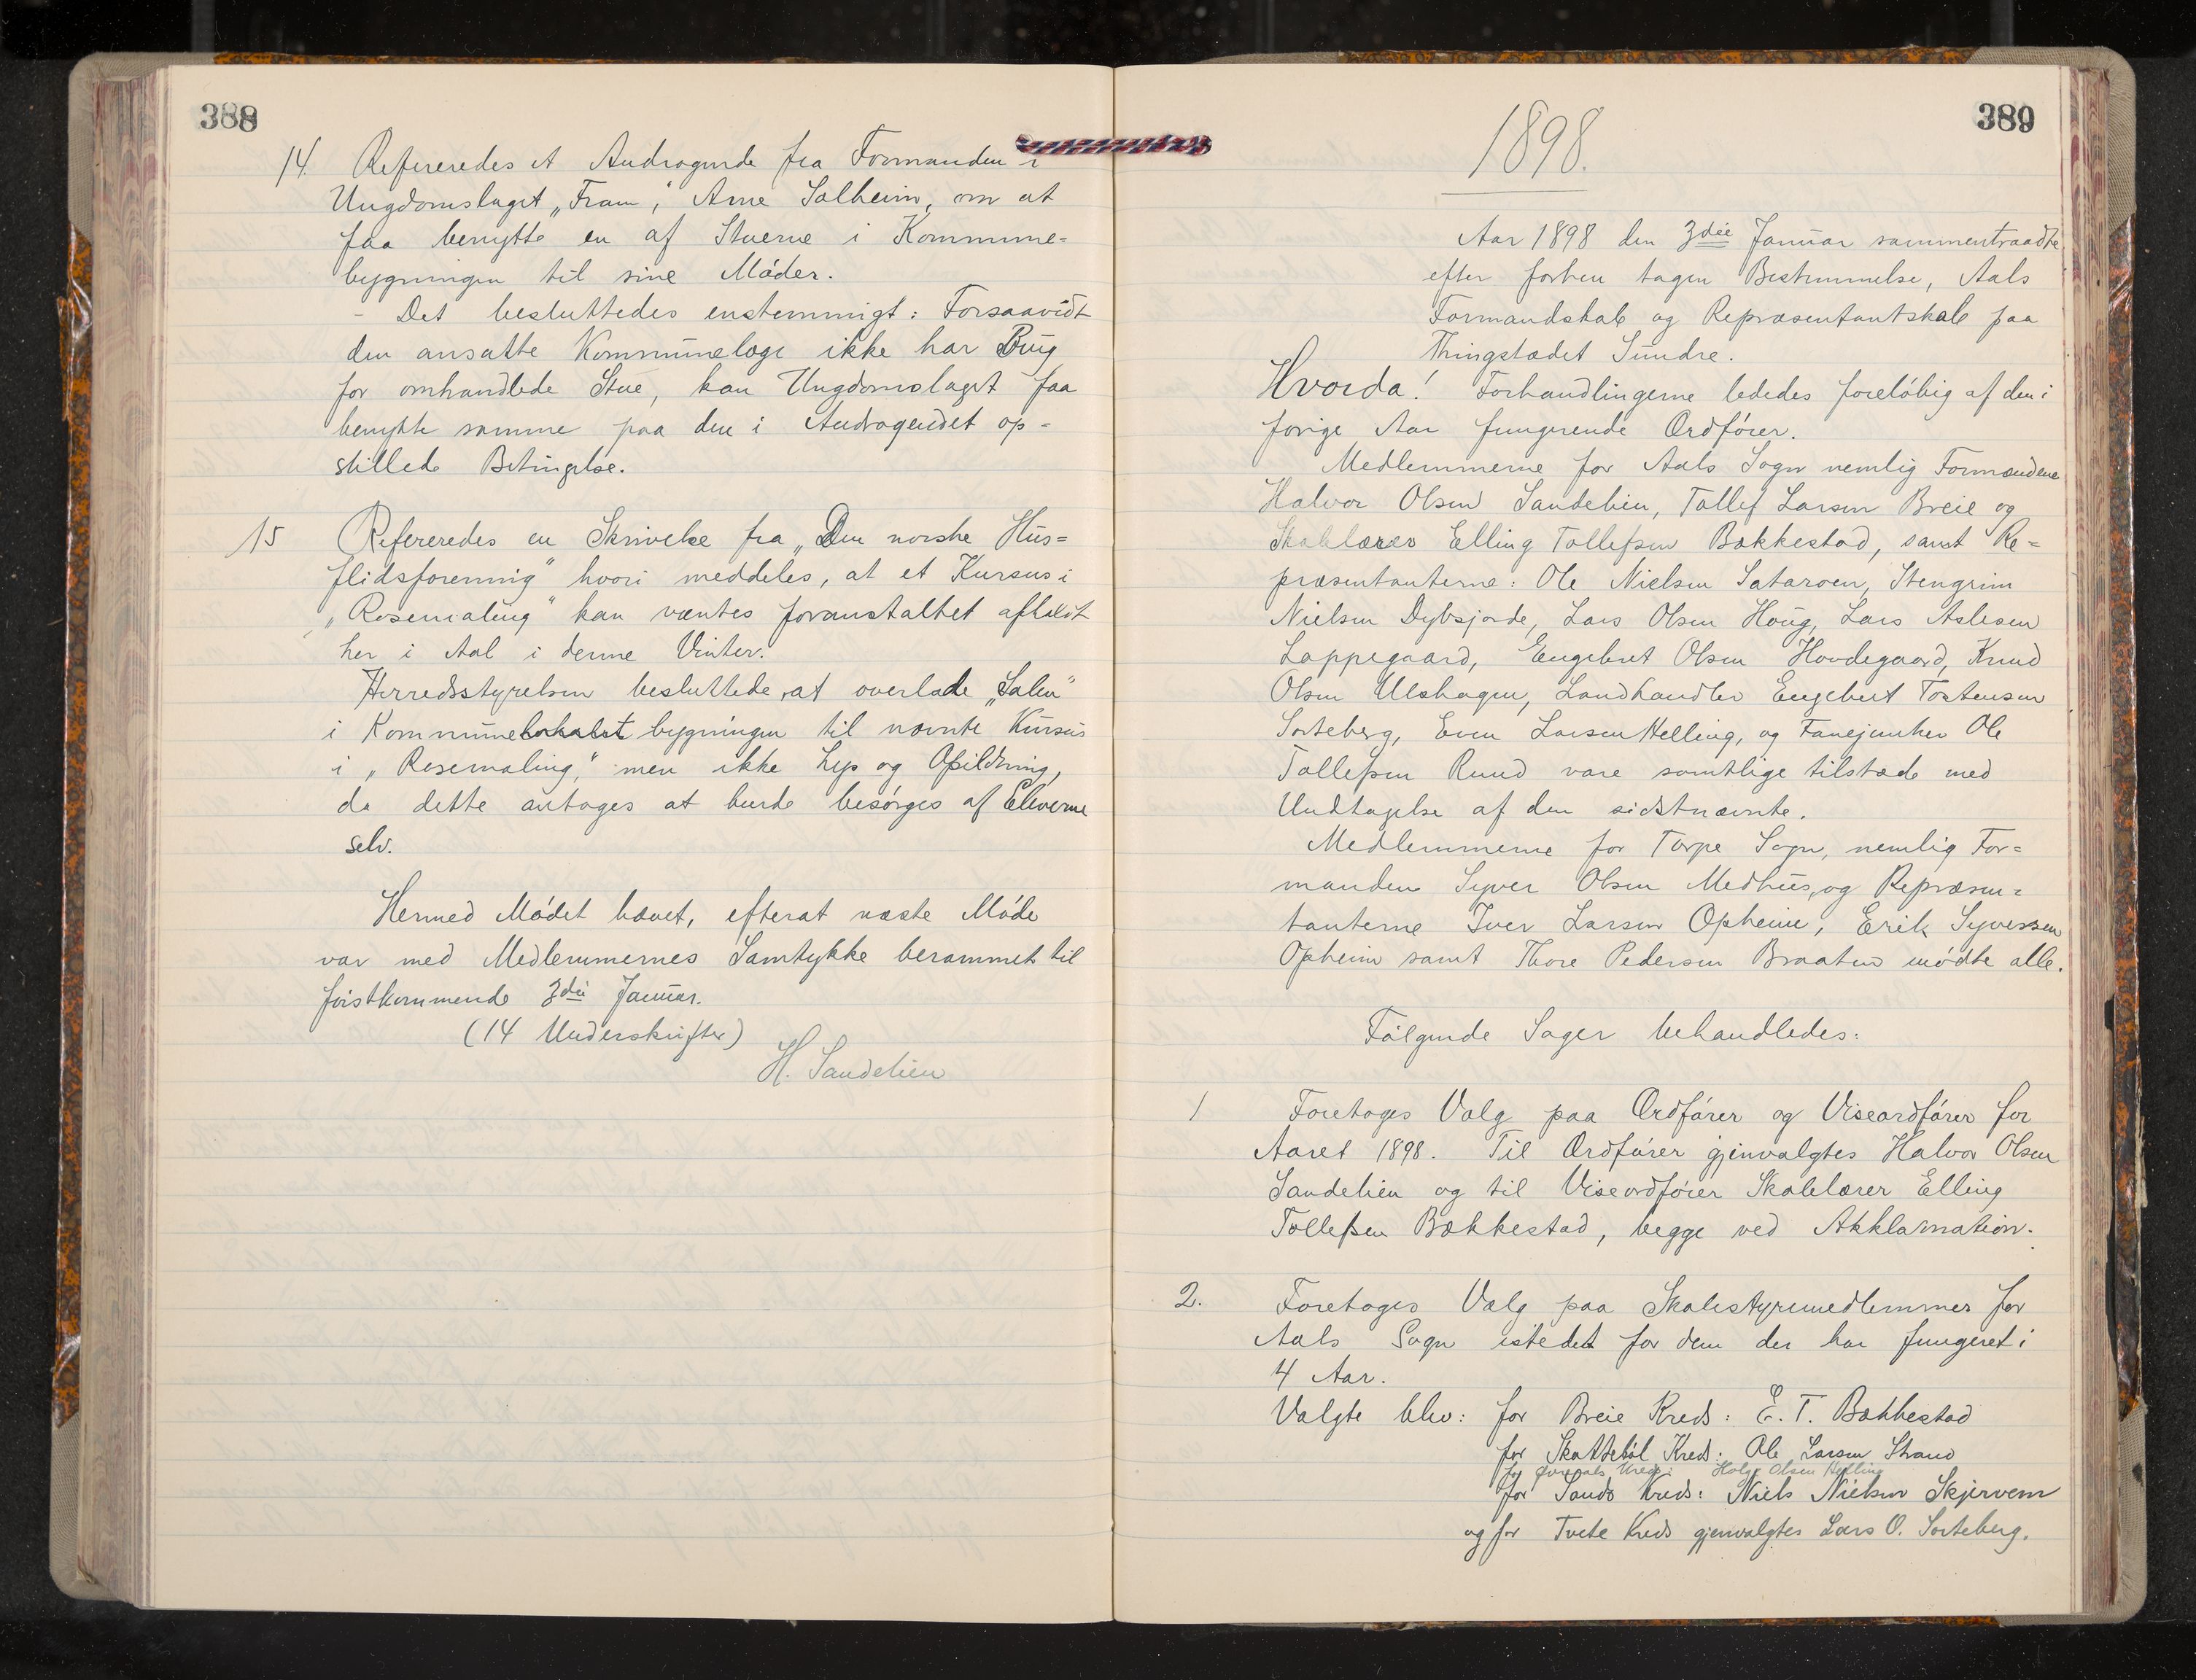 388
14. Refereredes et Andragende fra Formanden i
Ungdomslaget „Fram", Arne Solheim, om at
faa benytte en af Stuerne i Kommune=
bygningen til sine Møder.
- Det besluttedes enstemmigt: Forsaavidt
den ansatte Kommunelæge ikke har Brug
for omhandlede Stue, kan Ungdomslaget faa
benytte samme paa den i Andragendet op=
stillede Betingelse.
15 Refereredes en Skrivelse fra „Den norske Hus=
flidsforening" hvori meddeles, at et Kursus i
„Rosemaling" kan ventes foranstaltet afholdt
her i Aal i denne Vinter.
Herredsstyrelsen besluttede at overlade „Salen"
i Kommunelokalet bygningen til nævnte Kursus
i „Rosemaling," men ikke Lys og Opildning,
da dette antages at burde besørges af Eleverne
selv.
Hermed Mødet hævet, efterat næste Møde
var med Medlemmernes Samtykke berammet til
førstkommende 3die Januar.
(14 Underskrifter)
H. Sandelien
389
1898.
Aar 1898 den 3die Januar sammentraadte
efter forhen tagen Bestemmelse, Aals
Formandskab og Repræsentantskab paa
Thingstedet Sundre.
Hvorda! Forhandlingerne lededes foreløbig af den i
forige Aar fungerende Ordfører.
Medlemmerne for Aals Sogn nemlig Formændene
Halvor Olsen Sandelien, Tollef Larsen Breie og
Skolelærer Elling Tollefsen Bækkestad, samt Re=
præsentanterne: Ole Nielsen Sataroen, Stengrim
Nielsen Dybsjorde, Lars Olsen Houg, Lars Aslesen
Loppegaard, Engebret Olsen Hovdegaard, Knud
Olsen Ulshagen, Landhandler Engebret Tostensen
Sorteberg, Even Larsen Helling, og Fanejunker Ole
Tollefsen Ruud vare samtlige tilstede med
Undtagelse af den sidstnævnte.
Medlemmerne for Torpe Sogn, nemlig For=
manden Syver Olsen Medhus, og Repræsen=
tanterne Iver Larsen Opheim, Erik Syversen
Opheim samt Thore Pedersen Braaten mødte alle.
Følgende Sager behandledes:
1 Foretoges Valg paa Ordfører og Viseordfører for
Aaret 1898. Til Ordfører gjenvalgtes Halvor Olsen
Sandelien og til Viseordfører Skolelærer Elling
Tollefsen Bækkestad, begge ved Akklamation.
2. Foretoges Valg paa Skolestyremedlemmer for
Aals Sogn istedet for dem der har fungeret i
4 Aar.
Valgte blev: for Breie Kreds: E. T. Bækkestad
for Skattebøl Kreds: Ole Larsen Strand
for Øvreaals Kreds: Holge Olsen Helling
for Sando Kreds: Niels Nielsen Skjervem
og for Tvete Kreds gjenvalgtes Lars O. Sorteberg.